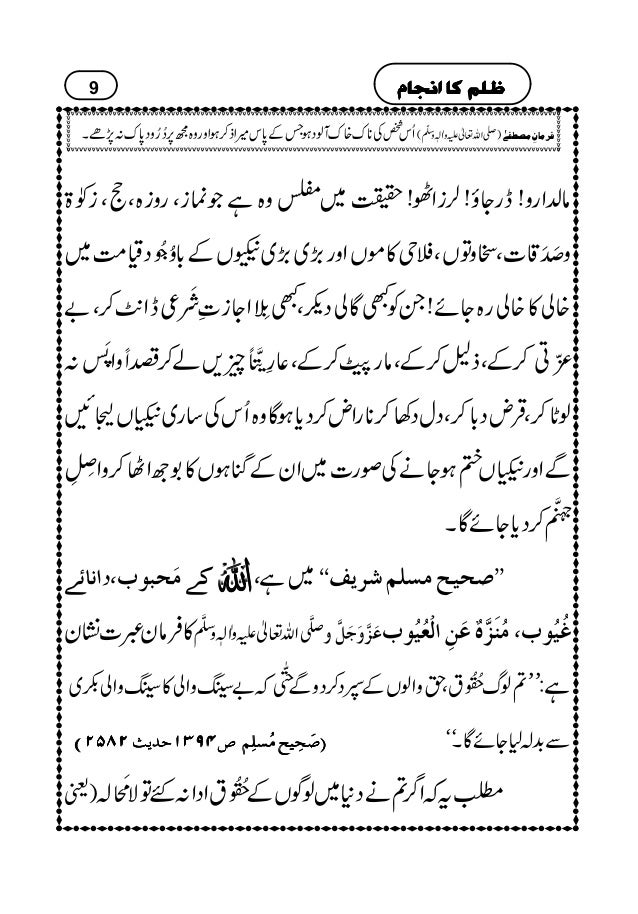 ظلم کا انجام
9
فرمانِ مصطفٰے (صلی اللہ تعالیٰ علیہ والہٖ وسلّم) اُس شخص کی ناک خاک آلود ہو جس کے پاس میرا ذکر ہو اور وہ مجھ پر دُرُود پاک نہ پڑھے۔
مالدارو! ڈر جاؤ! لرز اٹھو! حقیقت میں مفلس وہ ہے جو نماز، روزہ، حج، زکوٰۃ
وصَدَقات، سخاوتوں، فلاحی کاموں اور بڑی بڑی نیکیوں کے باوُجُود قیامت میں
خالی کا خالی رہ جائے! جن کو کبھی گالی دیکر، کبھی بِلا اجازتِ شَرعی ڈانٹ کر، بے
عزّتی کرکے، ذلیل کرکے، مار پیٹ کرکے، عارِیتًاً چیزیں لے کر قصداً واپَس نہ
لوٹا کر، قرض دبا کر، دل دکھا کر ناراض کردیا ہوگا وہ اُس کی ساری نیکیاں لیجائیں
گے اور نیکیاں ختم ہوجانے کی صورت میں ان کے گناہوں کا بوجھ اٹھا کر واصِلِ
جہنَّم کردیا جائے گا۔
’’صحیح مسلم شریف‘‘ میں ہے، اللّٰہ کے مَحبوب، دانائے
غُیُوب، مُنَزَّہٌ عَنِ الْعُیُوب عَزَّوَجَلَّ وصلَّی اللہ تعالیٰ علیہ والہٖ وسلَّم کا فرمانِ عبرت نشان
ہے: ’’تم لوگ حُقُوق، حق والوں کے سپرد کردو گے حتّٰی کہ بے سینگ والی کا سینگ والی بکری
سے بدلہ لیا جائے گا۔‘‘ (صَحِیح مُسلِم ص ۱۳۹۴ حدیث ۲۵۸۲)
مطلب یہ کہ اگر تم نے دنیا میں لوگوں کے حُقُوق ادا نہ کئے تو لامَحالہ (یعنی